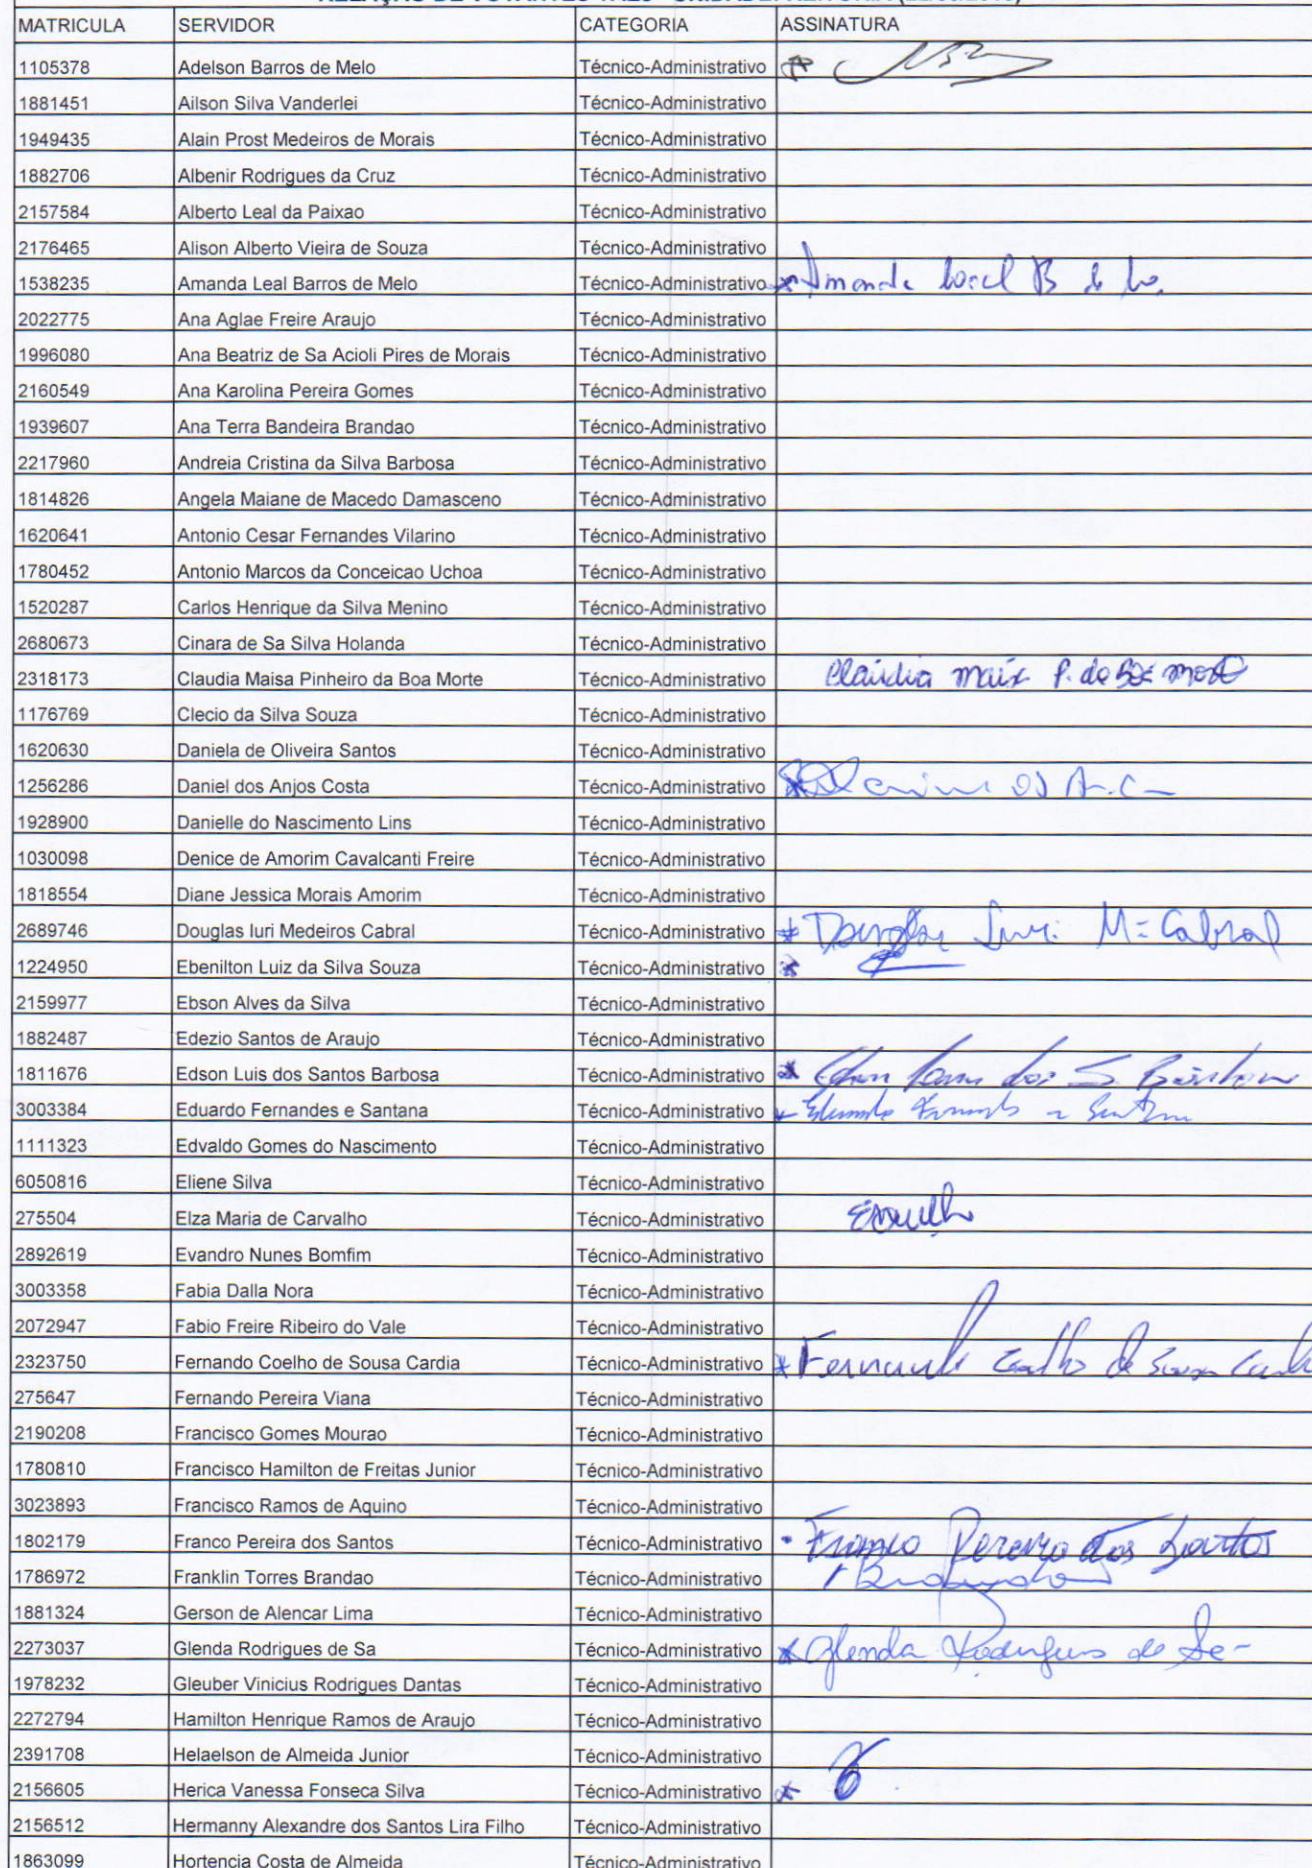 MATRICULA SERVIDOR CATEGORIA ASSINATURA
1105378 Adelson Barros de Melo Técnico-Administrativo
1881451 Ailson Silva Vanderlei Técnico-Administrativo
1949435 Alain Prost Medeiros de Morais Técnico-Administrativo
1882706 Albenir Rodrigues da Cruz Técnico-Administrativo
2157584 Alberto Leal da Paixao Técnico-Administrativo
2176465 Alison Alberto Vieira de Souza Técnico-Administrativo
1538235 Amanda Leal Barros de Melo Técnico-Administrativo Amanda Leal B de
2022775 Ana Aglae Freire Araujo Técnico-Administrativo
1996080 Ana Beatriz de Sa Acioli Pires de Morais Técnico-Administrativo
2160549 Ana Karolina Pereira Gomes Técnico-Administrativo
1939607 Ana Terra Bandeira Brandao Técnico-Administrativo
2217960 Andreia Cristina da Silva Barbosa Técnico-Administrativo
1814826 Angela Maiane de Macedo Damasceno Técnico-Administrativo
1620641 Antonio Cesar Fernandes Vilarino Técnico-Administrativo
1780452 Antonio Marcos da Conceicao Uchoa Técnico-Administrativo
1520287 Carlos Henrique da Silva Menino Técnico-Administrativo
2680673 Cinara de Sa Silva Holanda Técnico-Administrativo
2318173 Claudia Maisa Pinheiro da Boa Morte Técnico-Administrativo Claudia P. da
1176769 Clecio da Silva Souza Técnico-Administrativo
1620630 Daniela de Oliveira Santos Técnico-Administrativo
1256286 Daniel dos Anjos Costa Técnico-Administrativo
1928900 Danielle do Nascimento Lins Técnico-Administrativo
1030098 Denice de Amorim Cavalcanti Freire Técnico-Administrativo
1818554 Diane Jessica Morais Amorim Técnico-Administrativo
2689746 Douglas Iuri Medeiros Cabral Técnico-Administrativo Douglas Iuri M= Cabral
1224950 Ebenilton Luiz da Silva Souza Técnico-Administrativo
2159977 Ebson Alves da Silva Técnico-Administrativo
1882487 Edezio Santos de Araujo Técnico-Administrativo
1811676 Edson Luis dos Santos Barbosa Técnico-Administrativo Edson dos S. Barbosa
3003384 Eduardo Fernandes e Santana Técnico-Administrativo Eduardo Fernandes e Santana
1111323 Edvaldo Gomes do Nascimento Técnico-Administrativo
6050816 Eliene Silva Técnico-Administrativo
275504 Elza Maria de Carvalho Técnico-Administrativo
2892619 Evandro Nunes Bomfim Técnico-Administrativo
3003358 Fabia Dalla Nora Técnico-Administrativo
2072947 Fabio Freire Ribeiro do Vale Técnico-Administrativo
2323750 Fernando Coelho de Sousa Cardia Técnico-Administrativo Fernando Coelho de Sousa
275647 Fernando Pereira Viana Técnico-Administrativo
2190208 Francisco Gomes Mourao Técnico-Administrativo
1780810 Francisco Hamilton de Freitas Junior Técnico-Administrativo
3023893 Francisco Ramos de Aquino Técnico-Administrativo
1802179 Franco Pereira dos Santos Técnico-Administrativo Franco Pereira dos Santos
1786972 Franklin Torres Brandao Técnico-Administrativo
1881324 Gerson de Alencar Lima Técnico-Administrativo
2273037 Glenda Rodrigues de Sa Técnico-Administrativo Glenda Rodrigues de Sá
1978232 Gleuber Vinicius Rodrigues Dantas Técnico-Administrativo
2272794 Hamilton Henrique Ramos de Araujo Técnico-Administrativo
2391708 Helaelson de Almeida Junior Técnico-Administrativo
2156605 Herica Vanessa Fonseca Silva Técnico-Administrativo
2156512 Hermanny Alexandre dos Santos Lira Filho Técnico-Administrativo
1863099 Hortencia Costa de Almeida Técnico-Administrativo